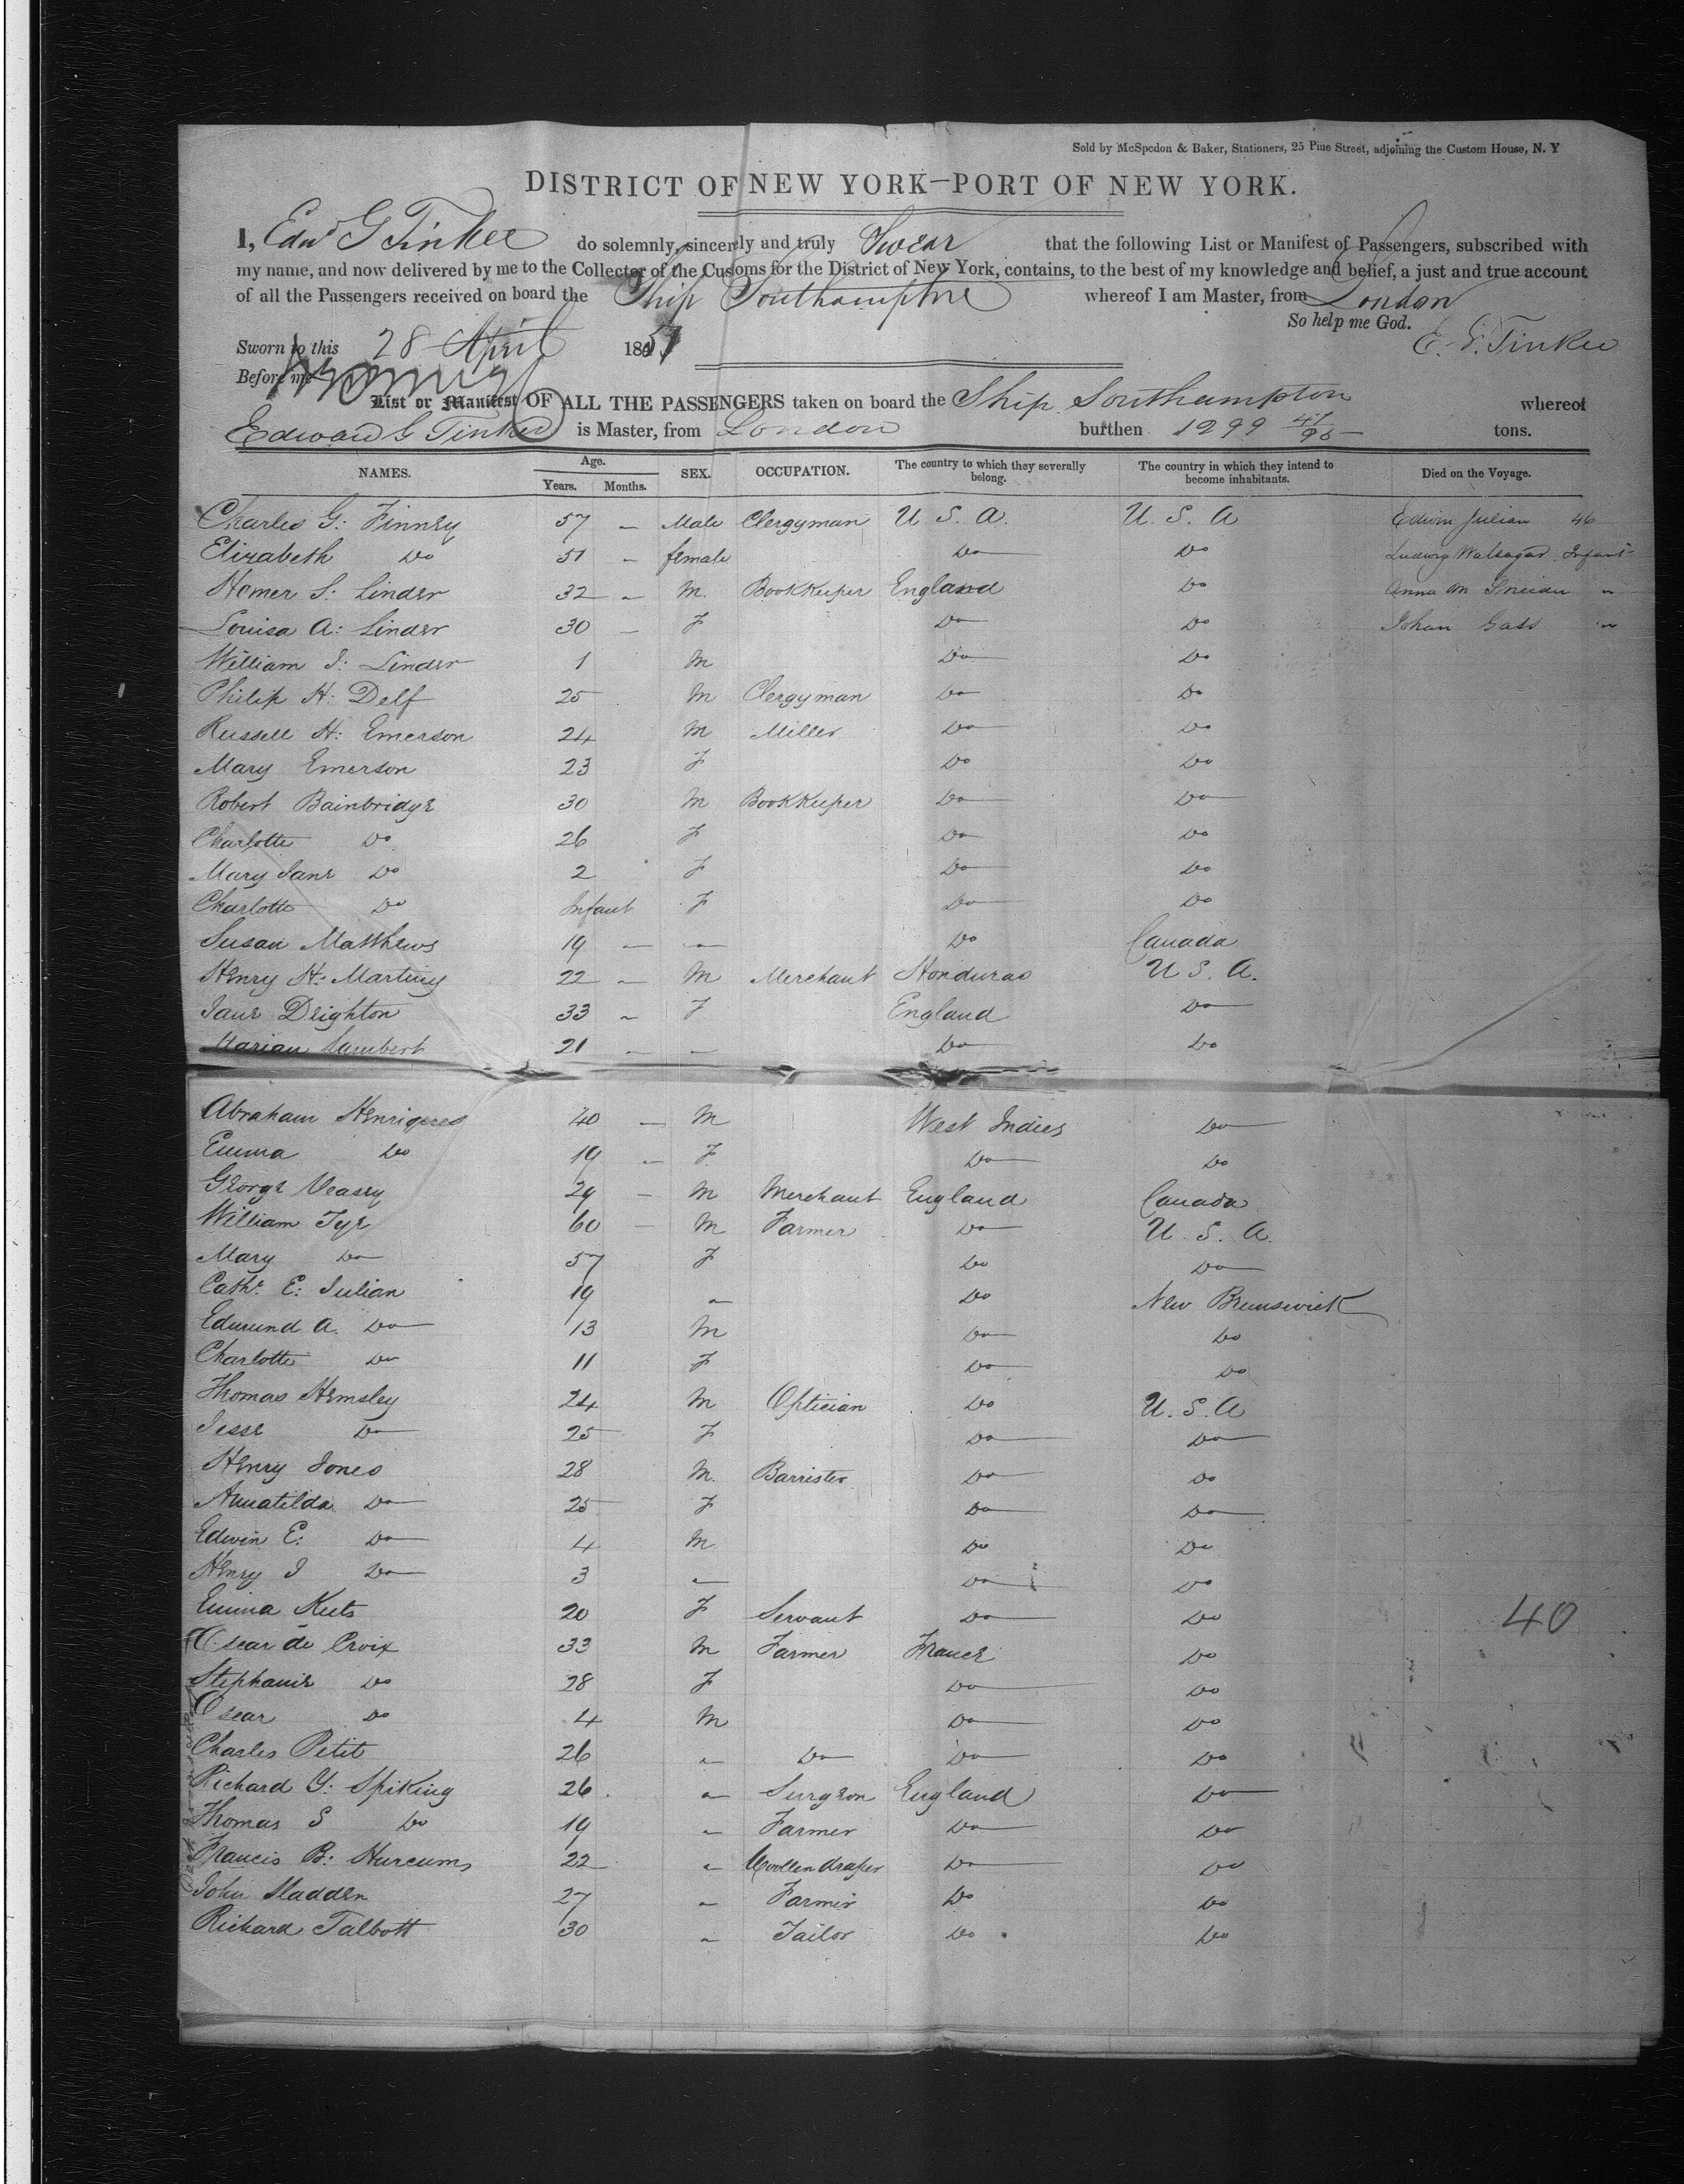 Sold by McSpedon & Baker, Stationers, 25 Pine Street, adjoining the Custom House, N. Y
DISTRICT OF NEW YORK—PORT OF NEW YORK.
I, Edwd G Tinker do solemnly, sincerely and truly Swear that the following List or Manifest of Passengers, subscribed with
my name, and now delivered by me to the Collector of the Customs for the District of New York, contains, to the best of my knowledge and belief, a just and true account
of all the Passengers received on board the Ship Southampton whereof I am Master, from London
So help me God.
Sworn to this 28 April 1851 E. G. Tinker
Before me
List or Manifest OF ALL THE PASSENGERS taken on board the Ship Southampton whereof
Edward G Tinker is Master, from London burthen 1299 41/95 tons.
NAMES. Age. Years. Months. SEX. OCCUPATION. The country to which they severally belong. The country in which they intend to become inhabitants. Died on the Voyage.
Charles G: Finney 57 — Male Clergyman U S. A. U. S. A Edwin Julian 46
Elizabeth Do 51 — female Do Do Ludwig Infant
Homer S: Linder 32 — M. BookKeeper England Do Anna M "
Louisa A: Linder 30 — F Do Do Johan Gass "
William S: Linder 1 M Do Do
Philip H: Delf 25 M Clergyman Do Do
Russell H: Emerson 24 M Miller Do Do
Mary Emerson 23 F Do Do
Robert Bainbridge 30 M BookKeeper Do Do
Charlotte Do 26 F Do Do
Mary Jane Do 2 F Do Do
Charlotte Do Infant F Do Do
Susan Matthews 19 — " Do Canada
Henry H: Martiny 22 — M Merchant Honduras U S. A.
Jane Deighton 33 " F England Do
Marian Lambert 21 — " Do Do
Abraham Henriques 40 — M West Indies Do
Emma Do 19 — F. Do Do
George Veasey 29 — M Merchant England Canada
William Tye 60 — M Farmer Do U. S. A.
Mary Do 57 F Do Do
Cathe E: Julian 19 " Do New Brunswick
Edmund A. Do 13 M Do Do
Charlotte Do 11 F Do Do
Thomas Hemsley 24 M Optician Do U. S. A
Jesse Do 25 F Do Do
Henry Jones 28 M. Barrister Do Do
Annatilda Do 25 F Do Do
Edwin E: Do 4 M Do Do
Henry J Do 3 " Do Do
Emma Keets 20 F Servant Do Do 40
Oscar de Croix 33 M Farmer France Do
Stephanie Do 28 F Do Do
Oscar Do 4 M Do Do
Charles Petit 26 " Do Do Do
Richard Y: Spiking 26 " Surgeon England Do
Thomas S Do 19 " Farmer Do Do
Francis B: Hurcum 22 " Woollen draper Do Do
John Madden 27 " Farmer Do Do
Richard Talbott 30 " Tailor Do Do